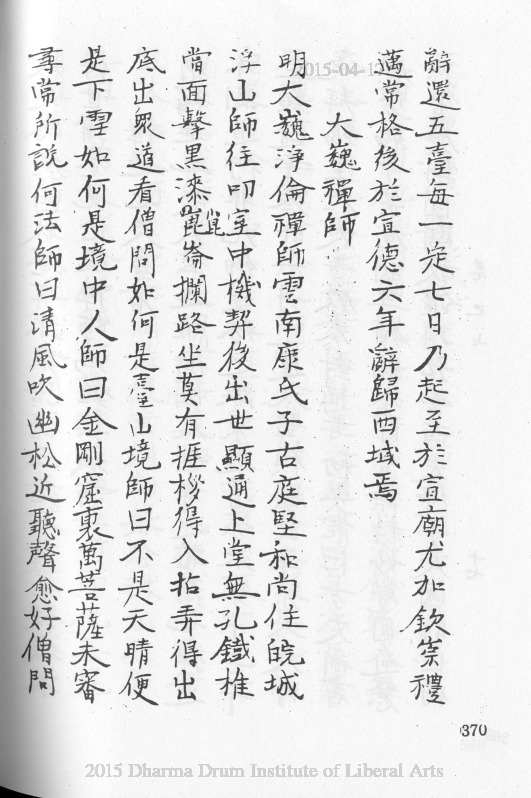 辭還五臺每一定七日乃起至於宣廟尤加欽崇禮
邁常格後於宣德六年辭歸西域焉
大巍禪師
明大巍淨倫禪師雲南康氏子古庭堅和尚住皖城
浮山師往叩室中機契後出世顯通上堂無孔鐵椎
當面擊黑漆崑崙攔路坐莫有捱拶得入拈弄得出
底出眾道看僧問如何是臺山境師曰不是天晴便
是下雪如何是境中人師曰金剛窟裏萬菩薩未審
尋常所說何法師曰清風吹幽松近聽聲愈好僧問
370
2015-04-13
2015 Dharma Drum Institute of Liberal Arts